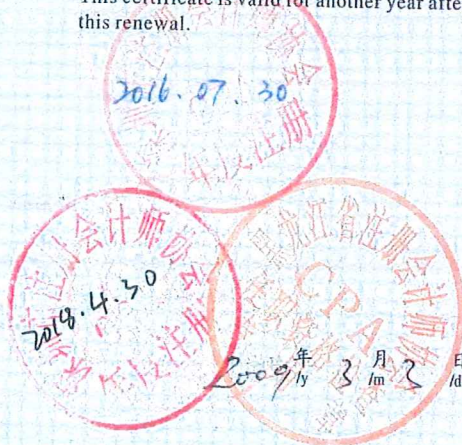 This certificate is valid for another year after
this renewal.
注册会计师协会
2016.07.30
年度注册
注册会计师协会
2018.4.30
年度注册
黑龙江省注册会计师协会
CPA
2009年/y 3月/m 3日/d